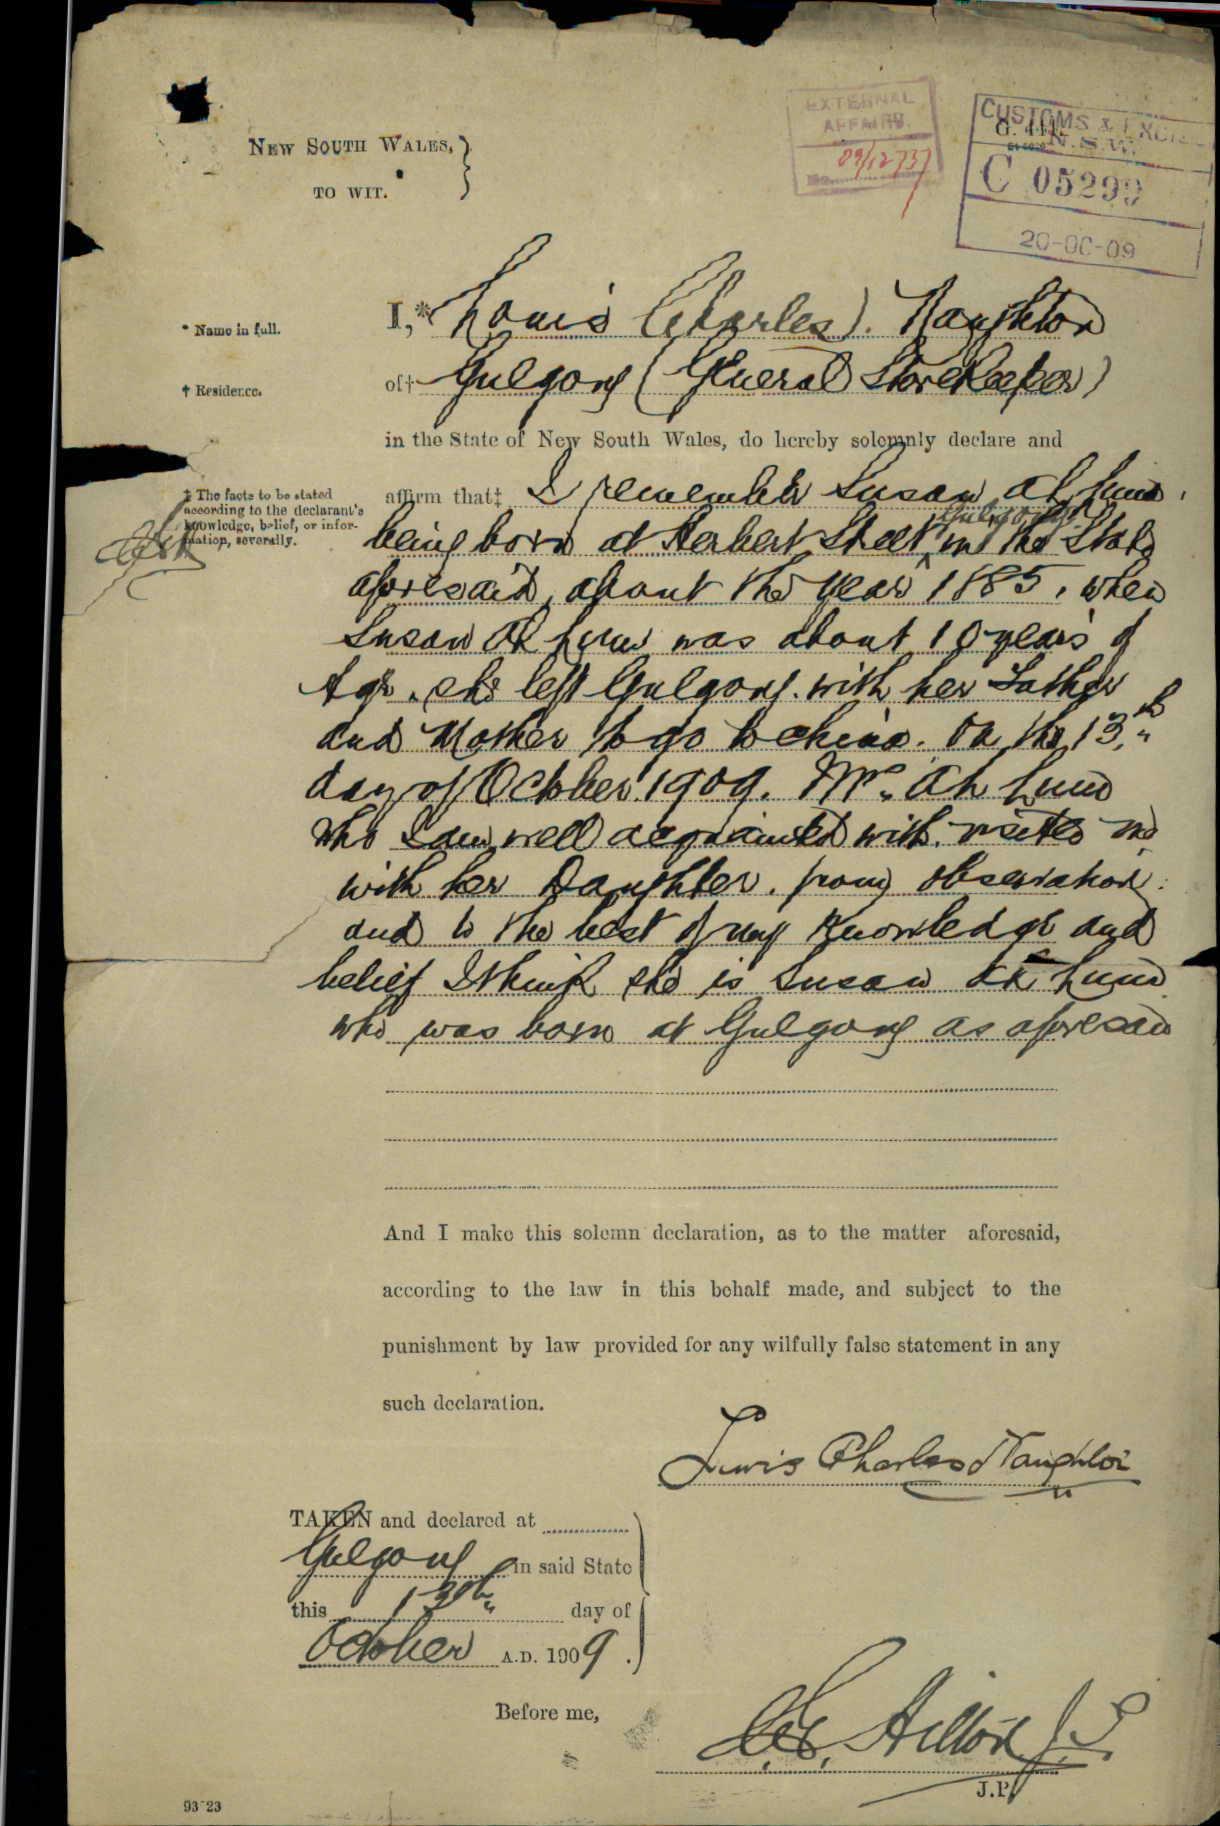 NEW SOUTH WALES,
TO WIT.
EXTERNAL
AFFAIRS.
No. 09/12737
CUSTOMS & EXCISE
N.S.W.
C 05299
20-OC-09
* Name in full.
I,* Louis (Charles). Naughton
† Residence.
of† Gulgong (General Storekeeper)
in the State of New South Wales, do hereby solemnly declare and
‡ The facts to be stated
according to the declarant's
knowledge, belief, or infor-
mation, severally.
affirm that‡ I remember Susan Ah Lum
Gulgong
being born at Herbert Street in the State
aforesaid, about the year 1885, when
Susan Ah Lum was about 10 years of
Age. she left Gulgong. with her Father
and Mother to go to China. On the 13th
day of October 1909. Mrs. Ah Lum
who I am well acquainted with. visited me
with her Daughter. from observation
and to the best of my Knowledge and
belief I think she is Susan Ah Lum
who was born at Gulgong as aforesaid
And I make this solemn declaration, as to the matter aforesaid,
according to the law in this behalf made, and subject to the
punishment by law provided for any wilfully false statement in any
such declaration.
Lewis Charles Naughton
TAKEN and declared at
Gulgong in said State
this 13th day of
October A.D. 1909.
Before me,
Hilton J.P.
J.P.
93 23